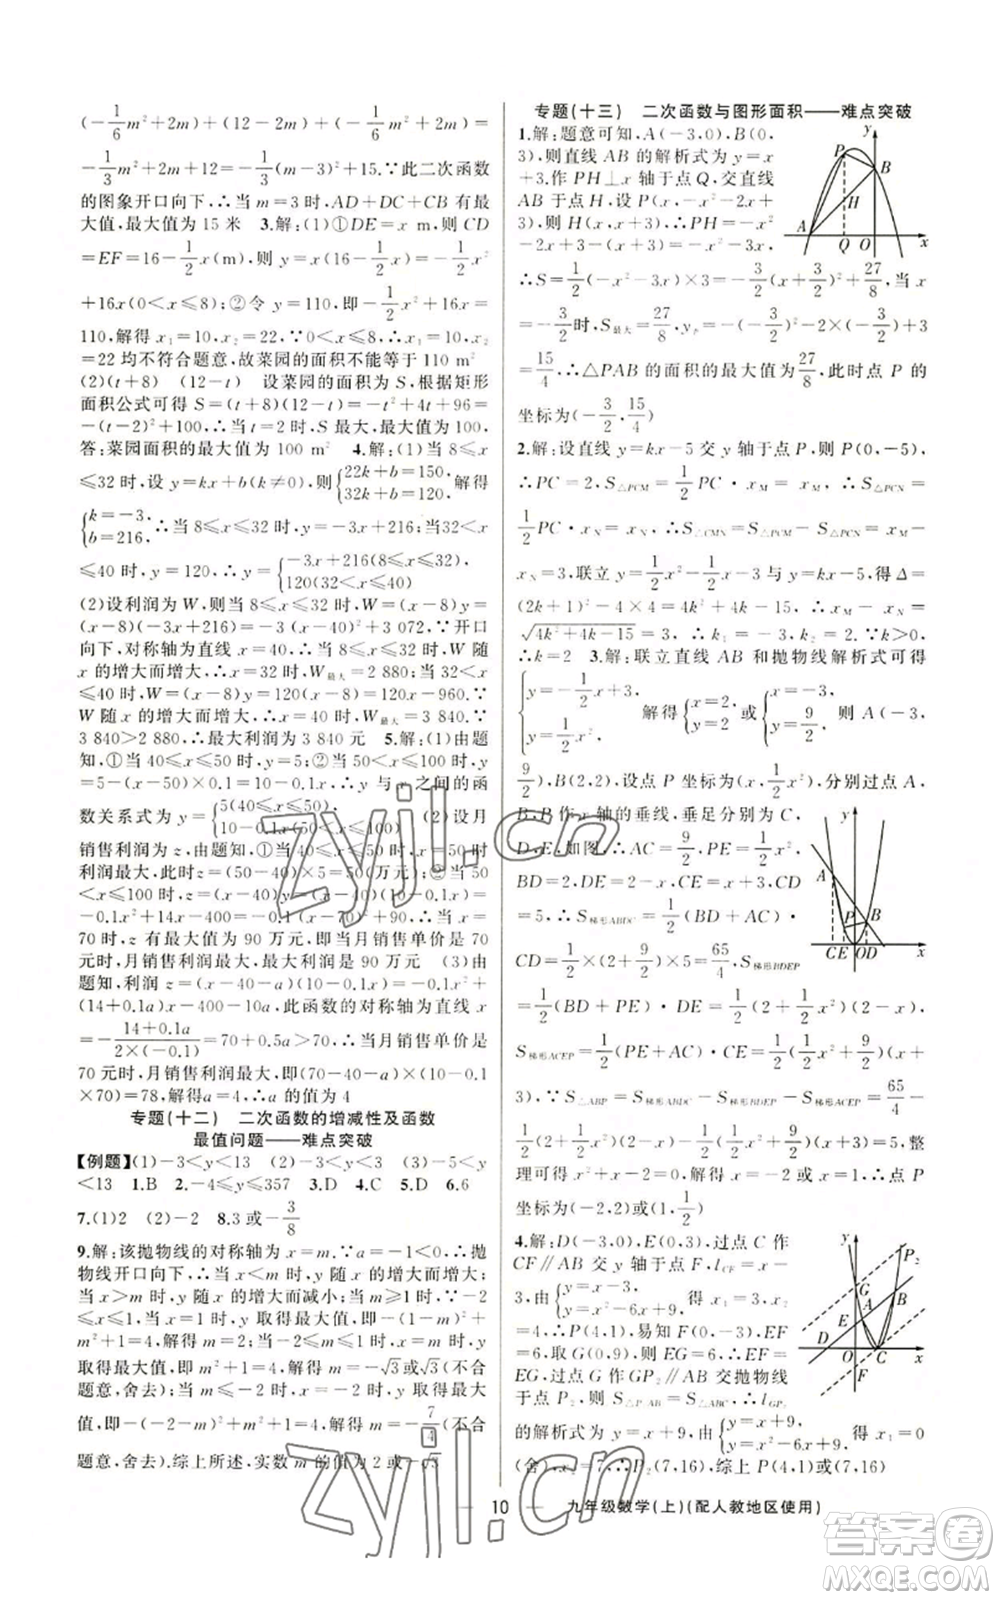 (-1/6m²+2m)+(12-2m)+(-1/6m²+2m)=
-1/3m²+2m+12=-1/3(m-3)²+15.∵此二次函数
的图象开口向下,∴当 m=3 时,AD+DC+CB 有最
大值,最大值为 15 米 3.解:(1)①DE=x m,则 CD
=EF=16-1/2x(m),则 y=x(16-1/2x)=-1/2x²
+16x(0<x≤8);②令 y=110,即-1/2x²+16x=
110,解得 x₁=10,x₂=22,∵0<x≤8,∴x₁=10,x₂
=22 均不符合题意,故菜园的面积不能等于 110 m²
(2)(t+8) (12-t) 设菜园的面积为 S,根据矩形
面积公式可得 S=(t+8)(12-t)=-t²+4t+96=
-(t-2)²+100,∴当 t=2 时,S 最大,最大值为 100,
答:菜园面积的最大值为 100 m² 4.解:(1)当 8≤x
≤32 时,设 y=kx+b(k≠0),则{22k+b=150, 32k+b=120, 解得
{k=-3, b=216, ∴当 8≤x≤32 时,y=-3x+216;当 32<x
≤40 时,y=120,∴y={-3x+216(8≤x≤32), 120(32<x≤40)
(2)设利润为 W,则当 8≤x≤32 时,W=(x-8)y=
(x-8)(-3x+216)=-3(x-40)²+3 072,∵开口
向下,对称轴为直线 x=40,∴当 8≤x≤32 时,W 随
x 的增大而增大,∴x=32 时,W最大=2 880,当 32<x
≤40 时,W=(x-8)y=120(x-8)=120x-960.∵
W 随 x 的增大而增大,∴x=40 时,W最大=3 840,∵
3 840>2 880,∴最大利润为 3 840 元 5.解:(1)由题
知,①当 40≤x≤50 时,y=5;②当 50<x≤100 时,y
=5-(x-50)×0.1=10-0.1x,∴y 与 x 之间的函
数关系式为 y={5(40≤x≤50), 10-0.1x(50<x≤100) (2)设月
销售利润为 z,由题知,①当 40≤x≤50 时,x=50 时
利润最大,此时 z=(50-40)×5=50(万元);②当 50
<x≤100 时,z=(x-40)y=(x-40)(10-0.1x)=
-0.1x²+14x-400=-0.1(x-70)²+90,∴当 x=
70 时,z 有最大值为 90 万元,即当月销售单价是 70
元时,月销售利润最大,最大利润是 90 万元 (3)由
题知,利润 z=(x-40-a)(10-0.1x)=-0.1x²+
(14+0.1a)x-400-10a,此函数的对称轴为直线 x
=-(14+0.1a)/(2×(-0.1))=70+0.5a>70,∴当月销售单价是
70 元时,月销售利润最大,即(70-40-a)×(10-0.1
×70)=78,解得a=4,∴a 的值为 4
专题(十二) 二次函数的增减性及函数
最值问题——难点突破
【例题】(1)-3<y<13 (2)-3<y<3 (3)-5<y
<13 1.B 2.-4≤y≤357 3.D 4.C 5.D 6.6
7.(1)2 (2)-2 8.3 或-3/8
9.解:该抛物线的对称轴为 x=m.∵a=-1<0,∴抛
物线开口向下,∴当 x<m 时,y 随 x 的增大而增大;
当 x>m 时,y 随 x 的增大而减小;当 m≥1 时,∵-2
≤x≤1,当 x=1 时,y 取得最大值,即-(1-m)²+
m²+1=4,解得 m=2;当-2≤m≤1 时,x=m 时,y
取得最大值,m²+1=4,解得 m=-√3或√3(不合
题意,舍去);当 m≤-2 时,x=-2 时,y 取得最大
值,即-(-2-m)²+m²+1=4,解得 m=-7/4(不合
题意,舍去).综上所述,实数 m 的值为 2 或-√3
专题(十三) 二次函数与图形面积——难点突破
1.解:题意可知,A(-3,0),B(0,
3),则直线 AB 的解析式为 y=x
+3.作 PH⊥x 轴于点 Q,交直线
AB 于点 H,设 P(x,-x²-2x+
3),则 H(x,x+3),∴PH=-x²
-2x+3-(x+3)=-x²-3x,
∴S=1/2(-x²-3x)×3=-3/2(x+3/2)²+27/8,当 x
=-3/2时,S最大=27/8,yₚ=-(-3/2)²-2×(-3/2)+3
=15/4,∴△PAB 的面积的最大值为27/8,此时点 P 的
坐标为(-3/2,15/4)
2.解:设直线 y=kx-5 交 y 轴于点 P,则 P(0,-5),
∴PC=2,S△PCM=1/2PC·xM=xM,S△PCN=
1/2PC·xN=xN,∴S△CMN=S△PCM-S△PCN=xM-
xN=3,联立 y=1/2x²-1/2x-3 与 y=kx-5 得 Δ=
(2k+1)²-4×4=4k²+4k-15,∴xM-xN=
√(4k²+4k-15)=3,∴k₁=-3,k₂=2,∵k>0,
∴k=2 3.解:联立直线 AB 和抛物线解析式可得
{y=-1/2x+3, y=1/2x², 解得{x=2, y=2 或{x=-3, y=9/2. 则 A(-3,
9/2),B(2,2),设点 P 坐标为(x,1/2x²),分别过点 A,
P,B 作 x 轴的垂线,垂足分别为 C,
E,D,如图,∴AC=9/2,PE=1/2x²,
BD=2,DE=2-x,CE=x+3,CD
=5,∴S梯形ABDC=1/2(BD+AC)·
CD=1/2×(2+9/2)×5=65/4,S梯形BDEP
=1/2(BD+PE)·DE=1/2(2+1/2x²)(2-x),
S梯形ACEP=1/2(PE+AC)·CE=1/2(1/2x²+9/2)(x+
3),∵S△ABP=S梯形ABDC-S梯形BDEP-S梯形ACEP=65/4
-1/2(2+1/2x²)(2-x)-1/2(1/2x²+9/2)(x+3)=5,整
理可得 x²+x-2=0,解得 x=-2 或 x=1,∴点 P
坐标为(-2,2)或(1,1/2)
4.解:D(-3,0),E(0,3),过点 C 作
CF∥AB 交 y 轴于点 F,lCF=x-
3,由{y=x-3, y=x²-6x+9, 得 x₁=3,x₂
=4,∴P(4,1),易知 F(0,-3),∴EF
=6.取 G(0,9),∴EG=6,∴EF=
EG,过点 G 作 GP₂∥AB 交抛物线
于点 P₂,则 S△P₂AB=S△ABC,∴lGP₂
的解析式为 y=x+9,由{y=x+9, y=x²-6x+9, 得 x₁=0
(舍),x₂=7,∴P₂(7,16),综上 P(4,1)或(7,16)
y
P
B
H
A
Q
O
x
y
A
P
B
CE
OD
x
y
P₂
G
B
E
A
D
O
C
x
F
10
九年级数学(上)(配人教地区使用)
zyjl.cn
zyjl.cn
答案圈
MXQE.COM